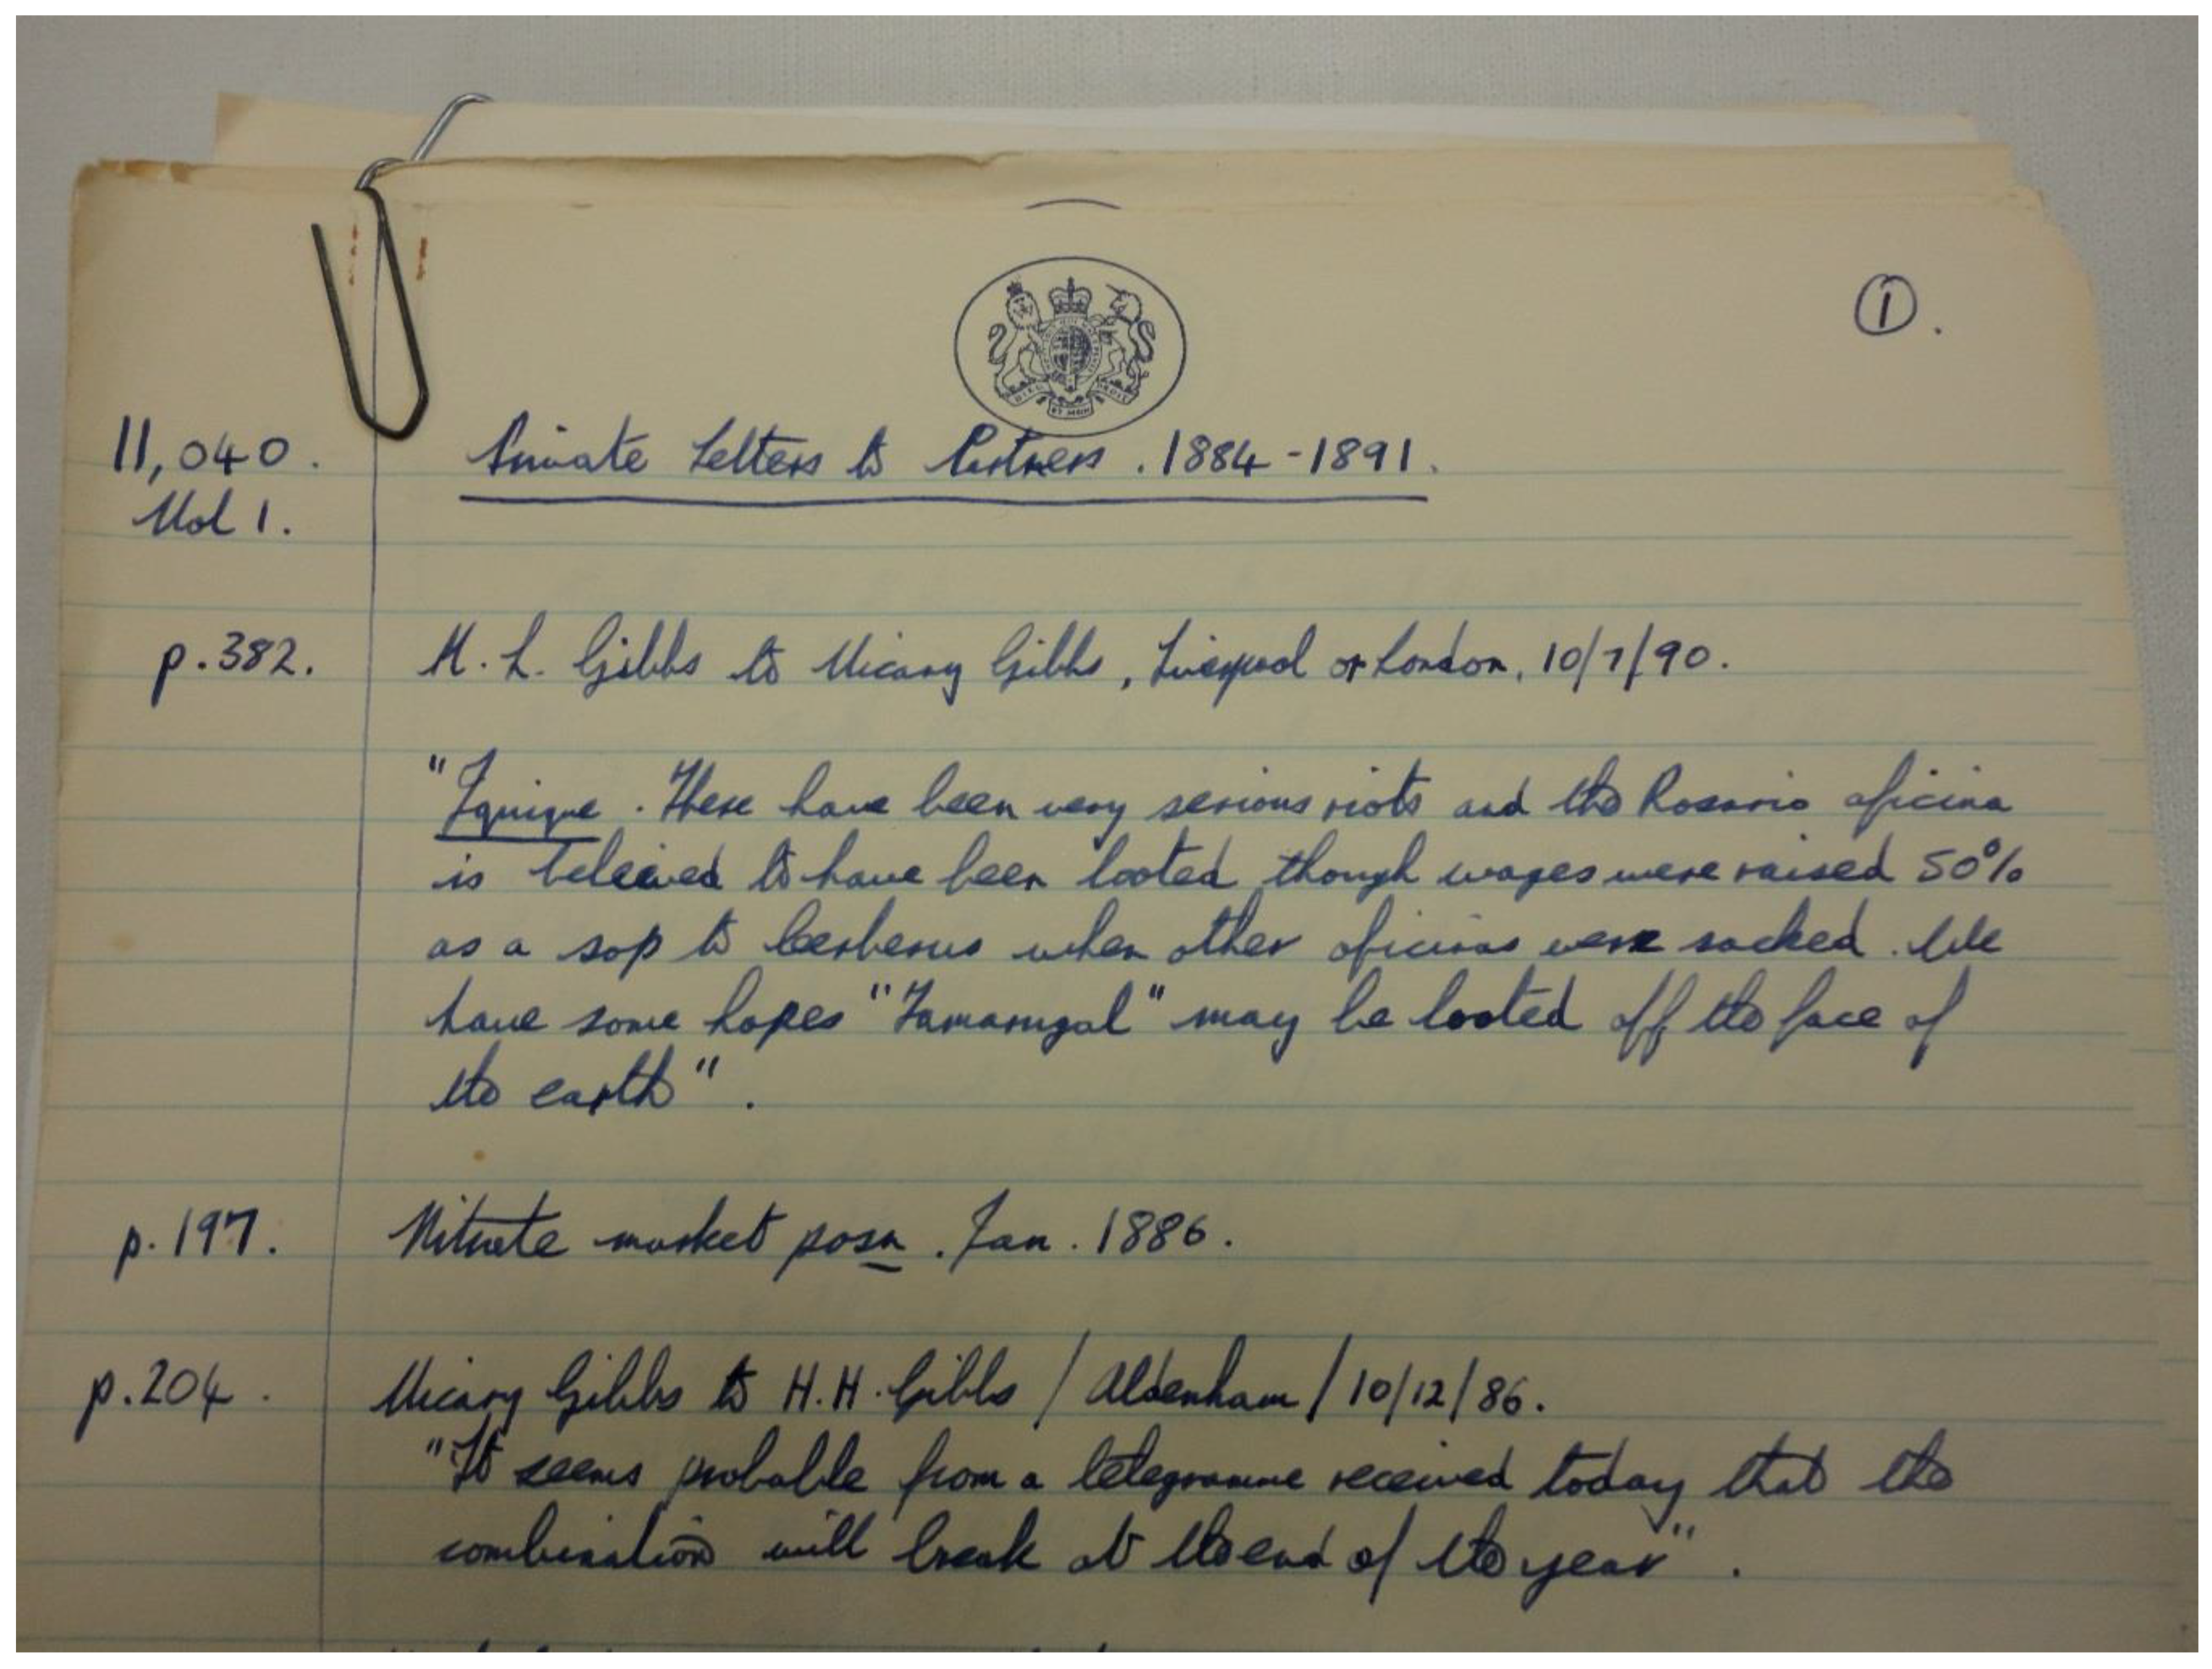 ①.
11,040. Private Letters to Partners. 1884-1891.
Vol 1.
p.382. H. L. Gibbs to Vicary Gibbs, Liverpool or London, 10/7/90.
"Iquique. There have been very serious riots and the Rosario oficina
is beleived to have been looted though wages were raised 50%
as a sop to Cerberus when other oficinas were sacked. We
have some hopes "Tamarugal" may be looted off the face of
the earth".
p.197. Nitrate market posn. Jan. 1886.
p.204. Vicary Gibbs to H.H. Gibbs / Aldenham / 10/12/86.
"It seems probable from a telegramme received today that the
combination will break at the end of the year".